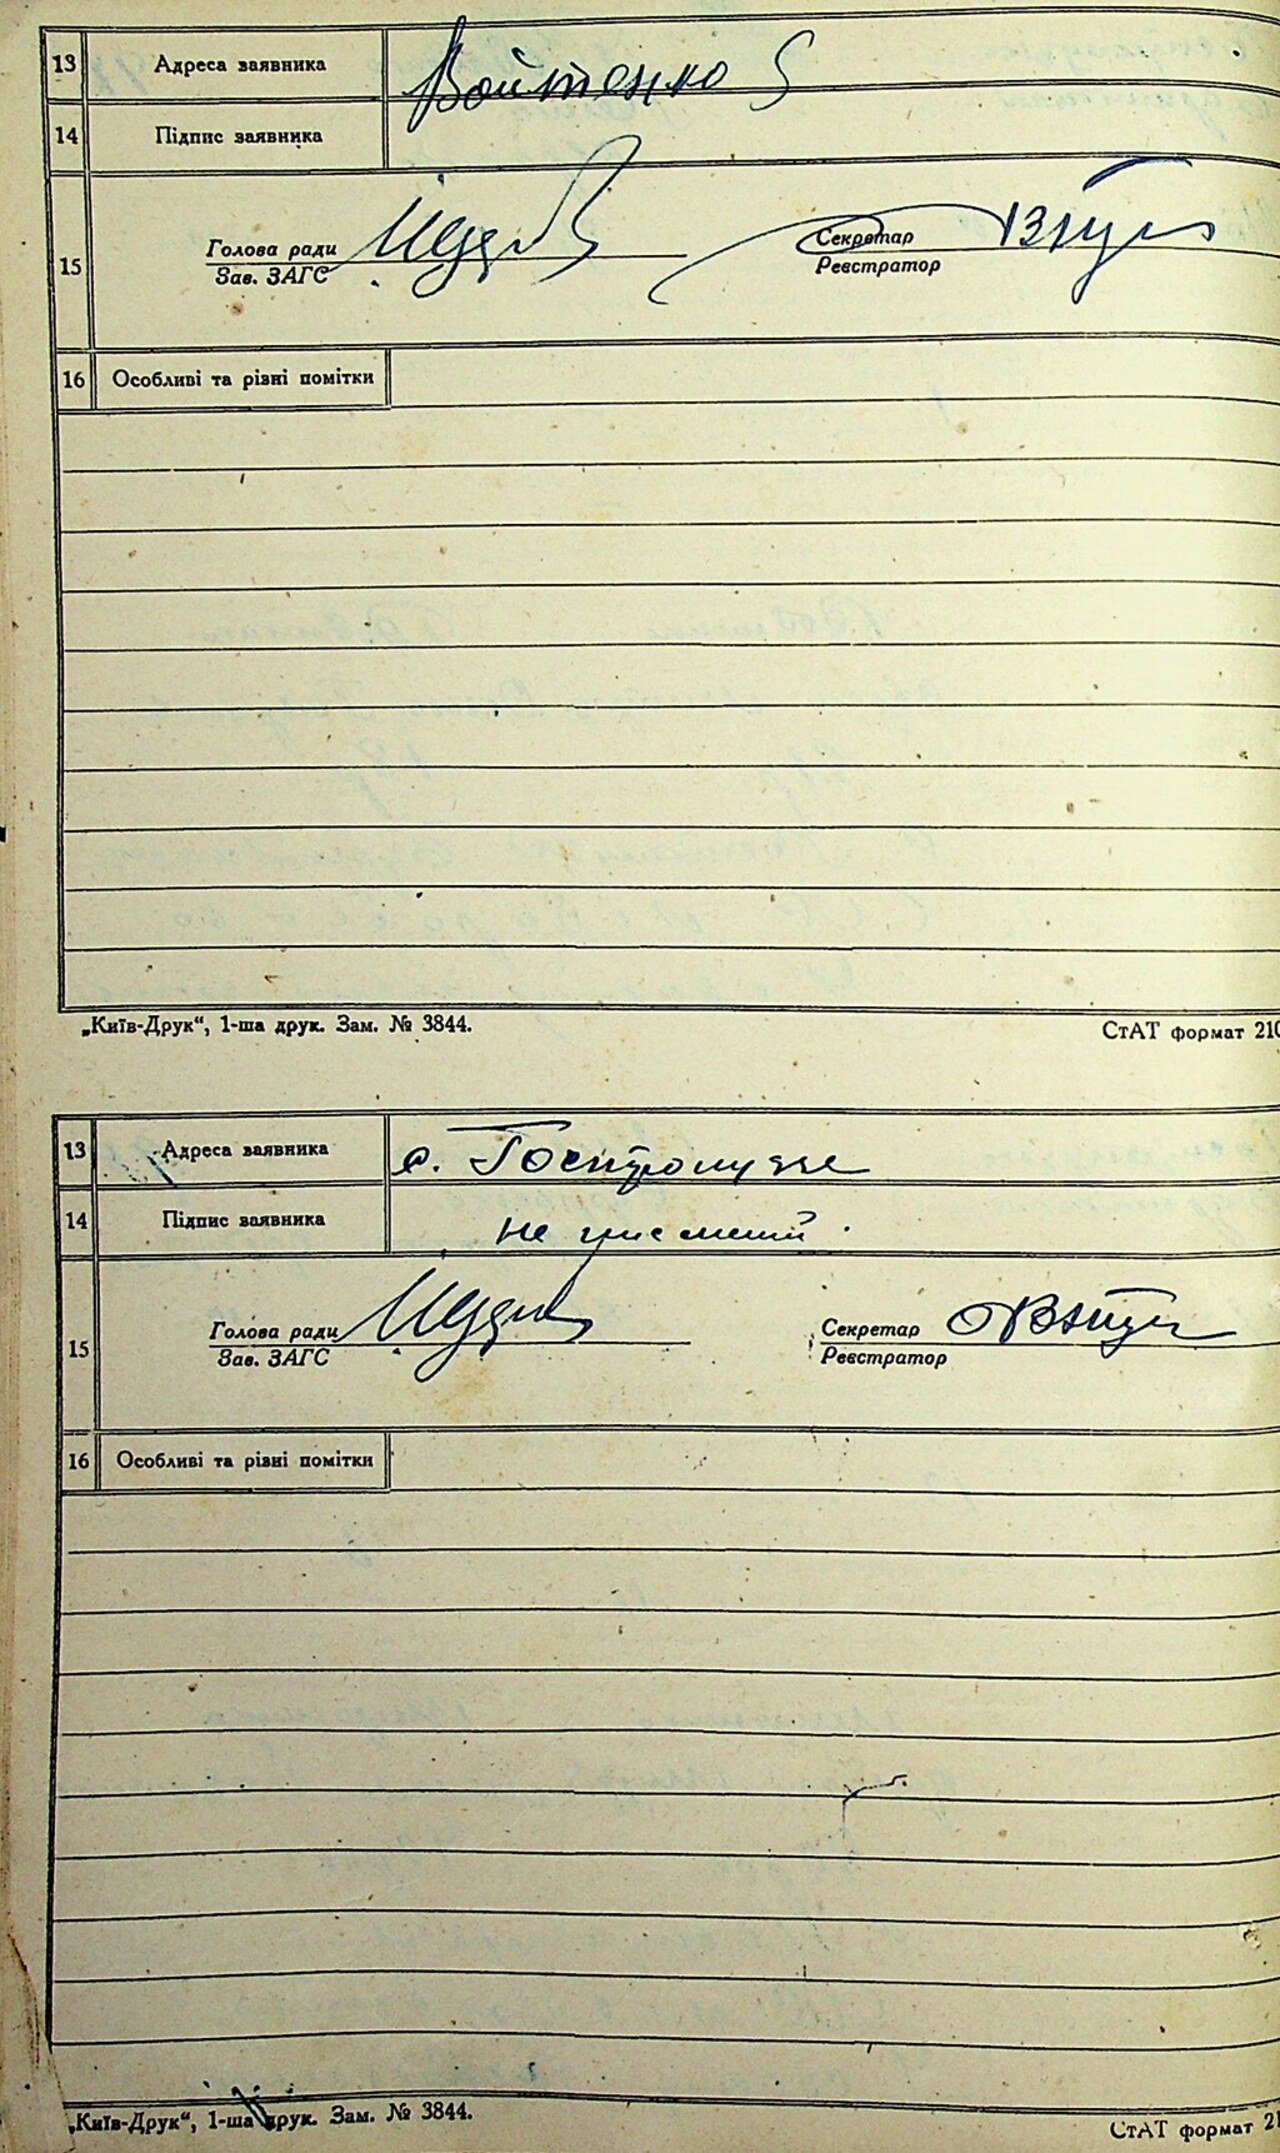 13 Адреса заявника Войтенко
14 Підпис заявника
15 Голова ради Секретар
Зав. ЗАГС Реєстратор
16 Особливі та різні помітки
„Київ-Друк“, 1-ша друк. Зам. № 3844. СтАТ формат 210
13 Адреса заявника с.
14 Підпис заявника не писмений
15 Голова ради Секретар
Зав. ЗАГС Реєстратор
16 Особливі та різні помітки
„Київ-Друк“, 1-ша друк. Зам. № 3844. СтАТ формат 21